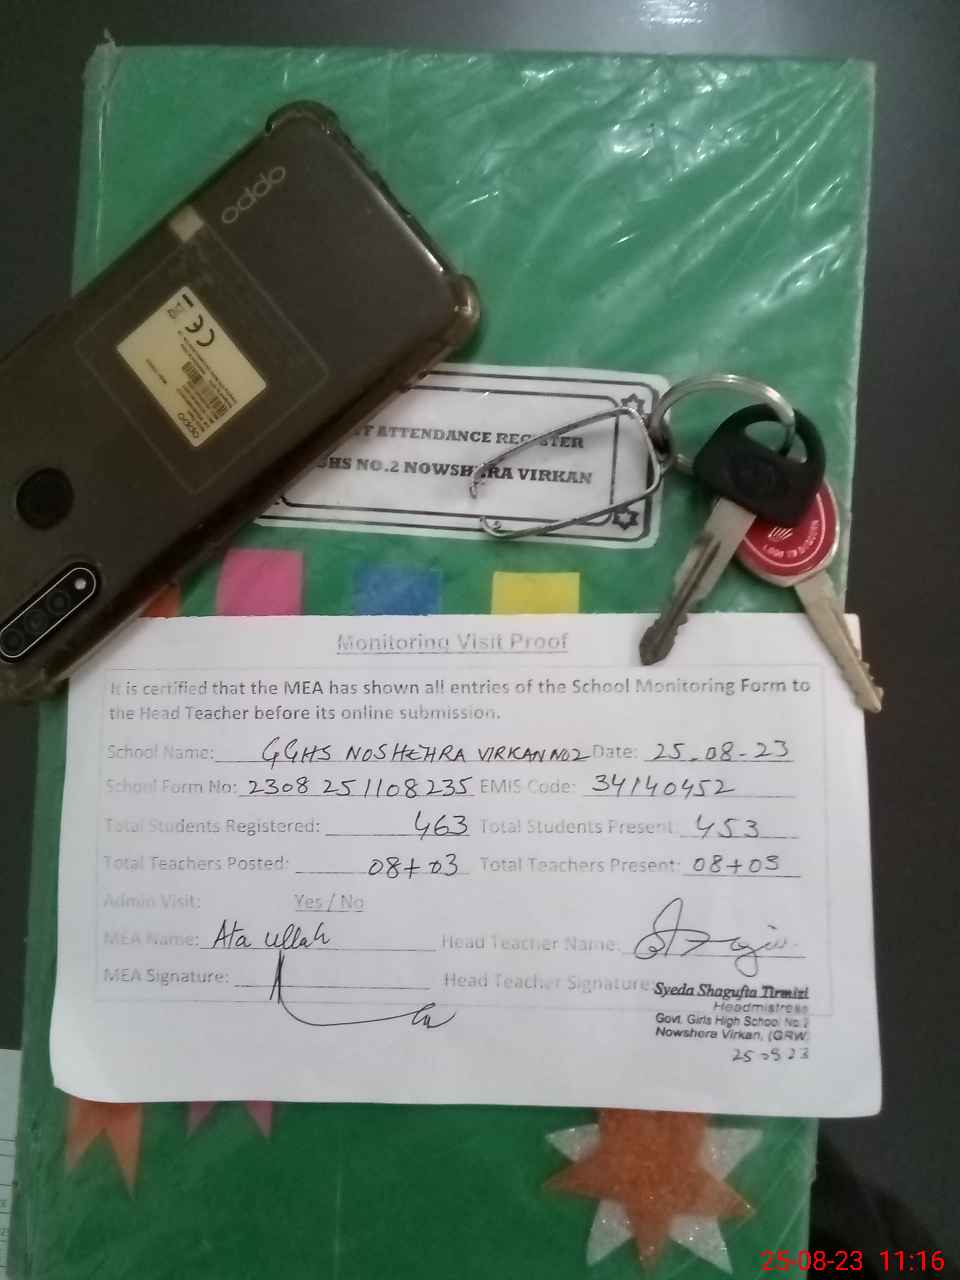 oppo
ATTENDANCE REGISTER
GHS NO.2 NOWSHERA VIRKAN
Monitoring Visit Proof
It is certified that the MEA has shown all entries of the School Monitoring Form to
the Head Teacher before its online submission.
School Name: GGHS NOSHEHRA VIRKAN NO2 Date: 25-08-23
School Form No: 2308 251108235 EMIS Code: 34140452
Total Students Registered: 463 Total Students Present: 453
Total Teachers Posted: 08+03 Total Teachers Present: 08+03
Admin Visit: Yes / No
MEA Name: Ata ullah Head Teacher Name:
MEA Signature: Head Teacher Signature:
Syeda Shagufta Tirmizi
Headmistress
Govt. Girls High School No.2
Nowshera Virkan, (GRW
25-08-23 11:16